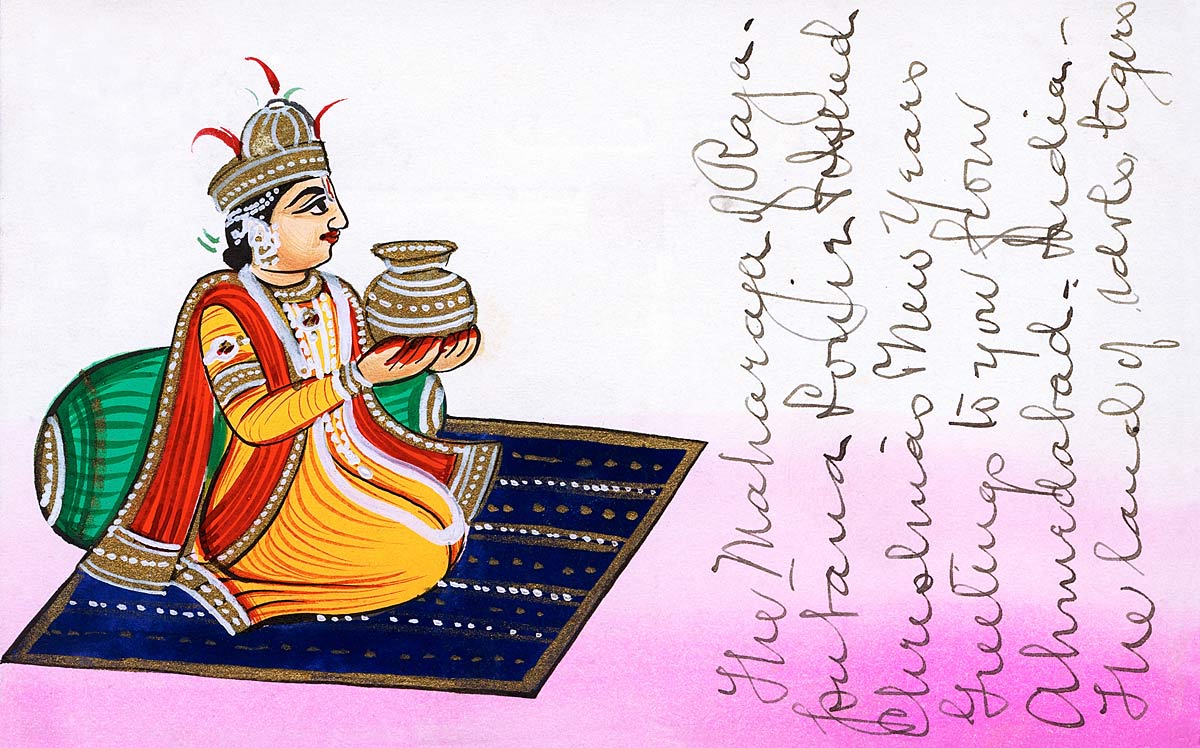 The Maharaja of Raja-
putana
Christmas New Years
Greetings to you from
Ahmedabad - India -
The land of idols, tigers